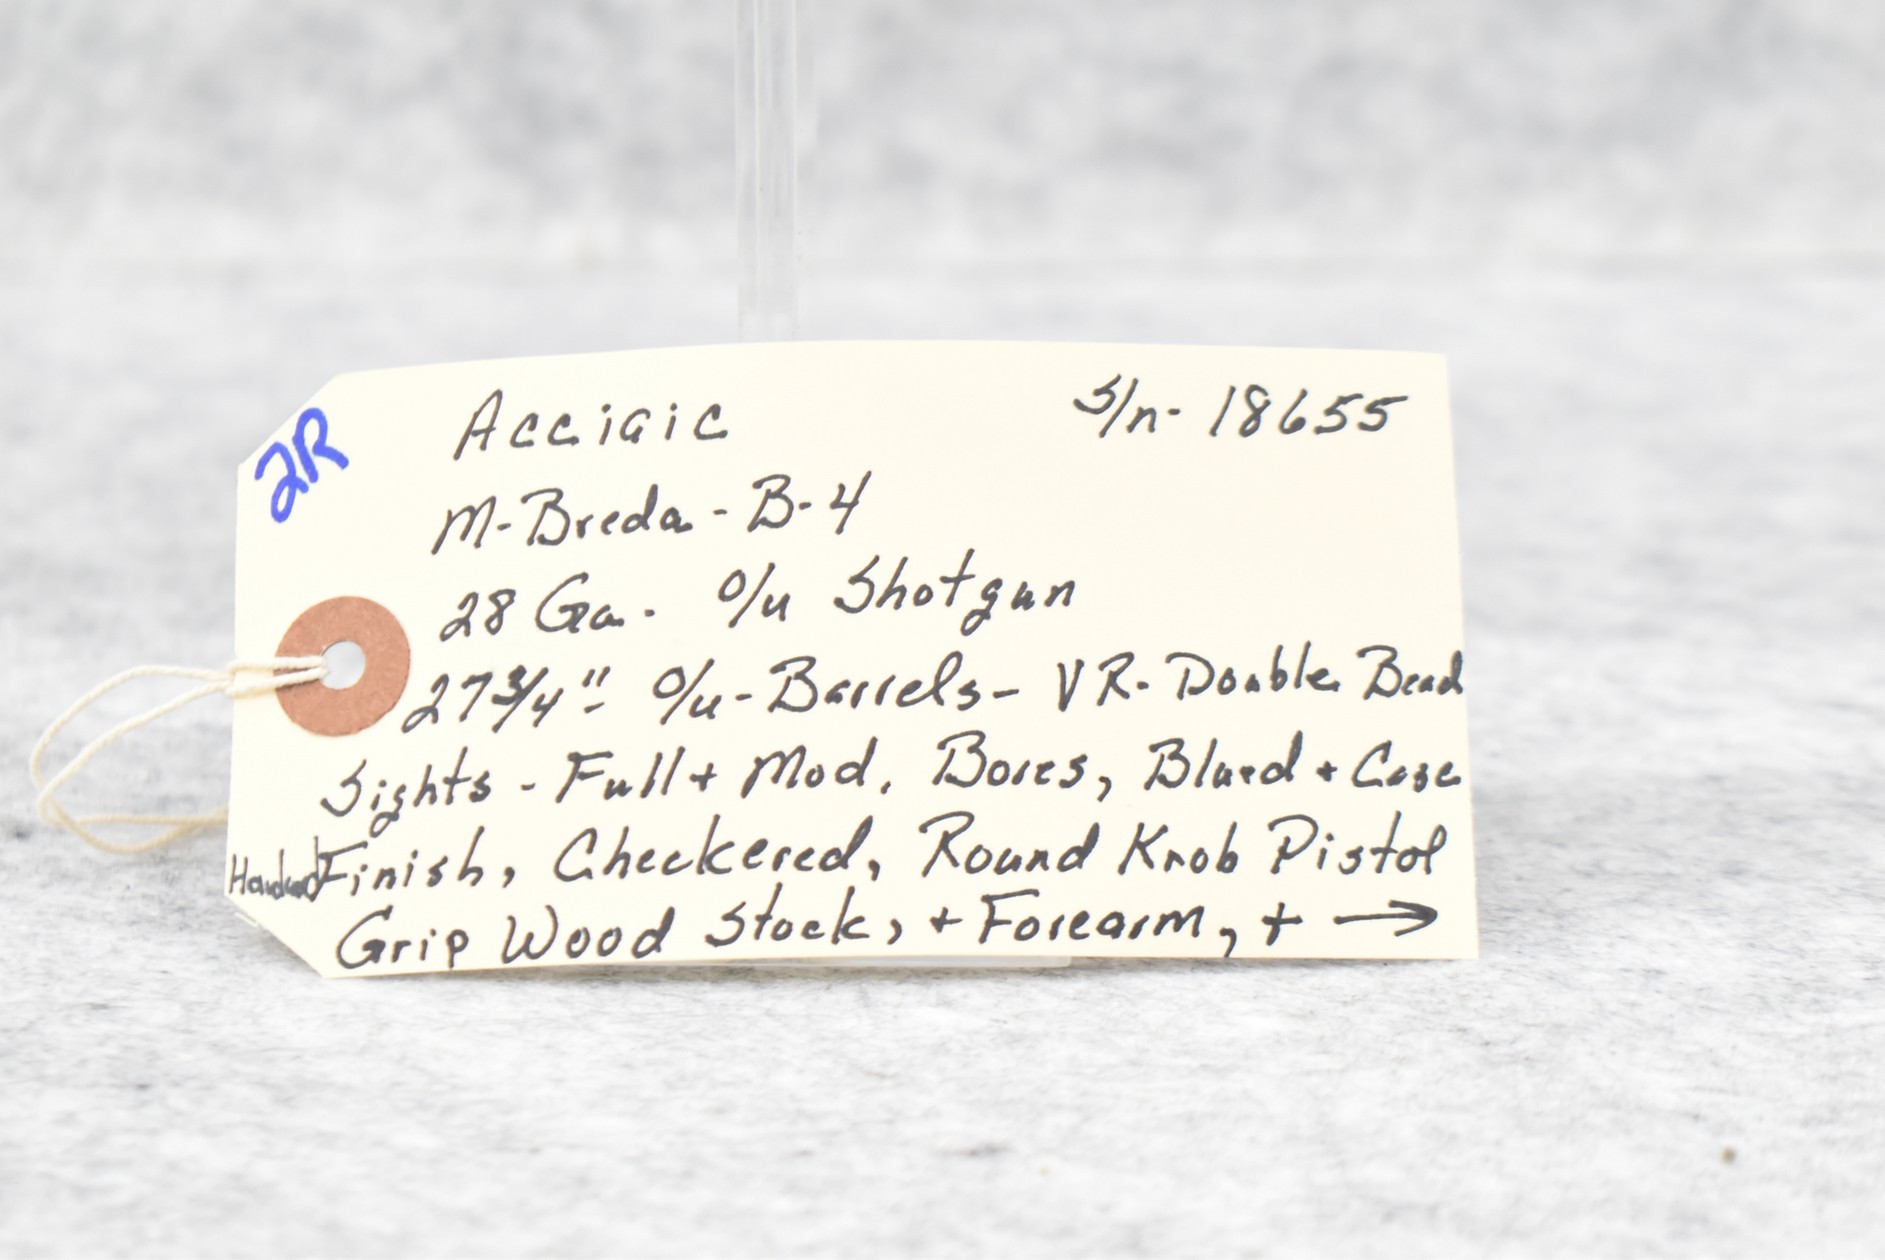 2R
Acciaic S/n- 18655
M-Breda-B-4
28 Ga. O/u Shotgun
27 3/4" O/u-Barrels- VR-Double Bead
Sights - Full + Mod. Bores, Blued + Case
Hardened Finish, Checkered, Round Knob Pistol
Grip Wood Stock, + Forearm, + →